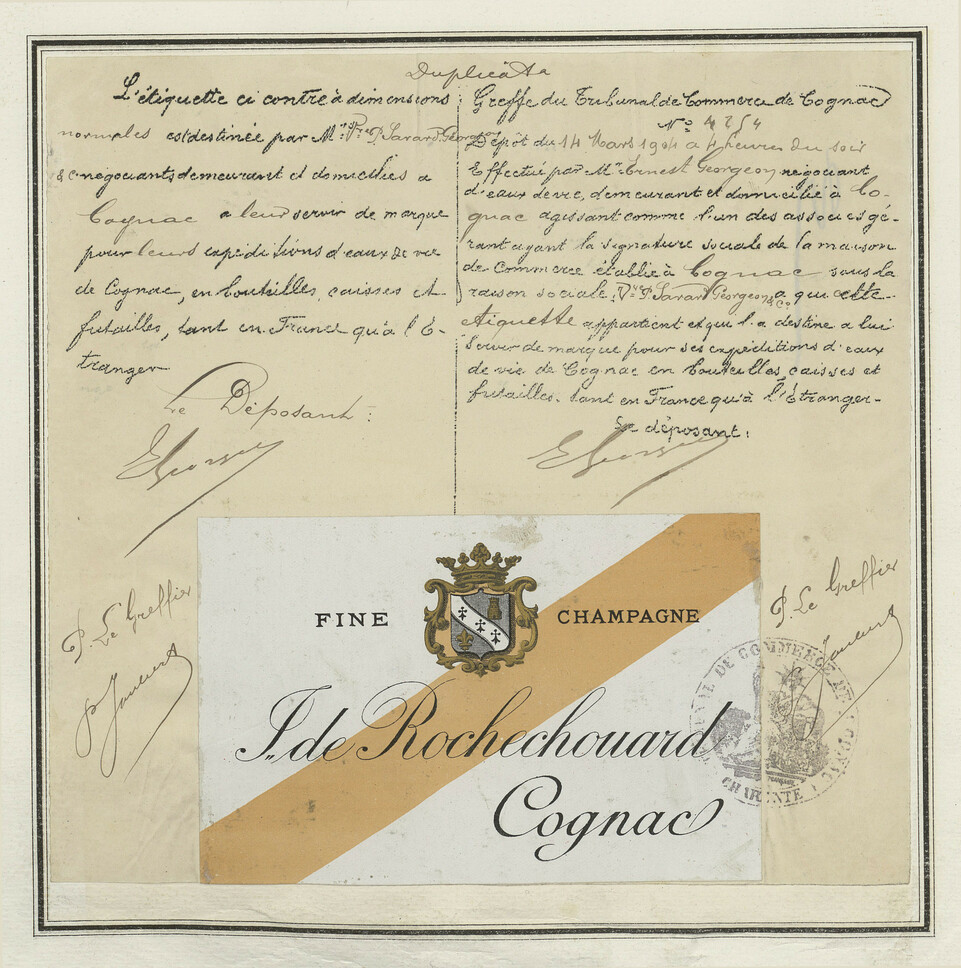 Duplicata
L'étiquette ci contre à dimensions
normales est destinée par Mrs Vve P. Savard, Georgeon
& C négociants demeurant et domiciliés a
Cognac a leur servir de marque
pour leurs expéditions d'eaux de vie
de Cognac, en bouteilles, caisses et
futailles, tant en France qu'à l'É-
tranger
Le Déposant :
E Georgeon
Greffe du Tribunal de Commerce de Cognac
No 4254
Dépôt du 14 Mars 1904 a 4 heures du soir
Effectué par Mr Ernest Georgeon négociant
d'eaux de vie, demeurant et domicilié à Co-
gnac agissant comme l'un des associés gé-
rant ayant la signature sociale de la maison
de Commerce établie à Cognac sous la
raison sociale Vve P. Savard Georgeon & Co a qui cette
etiquette appartient et qui l'a destine a lui
servir de marque pour ses expéditions d'eaux
de vie de Cognac en bouteilles, caisses et
futailles. tant en France qu'à l'Étranger-
Le déposant :
E Georgeon
P. Le Greffier
P. Le Greffier
FINE CHAMPAGNE
J. de Rochechouard
Cognac
TRIBUNAL DE COMMERCE DE COGNAC
CHARENTE